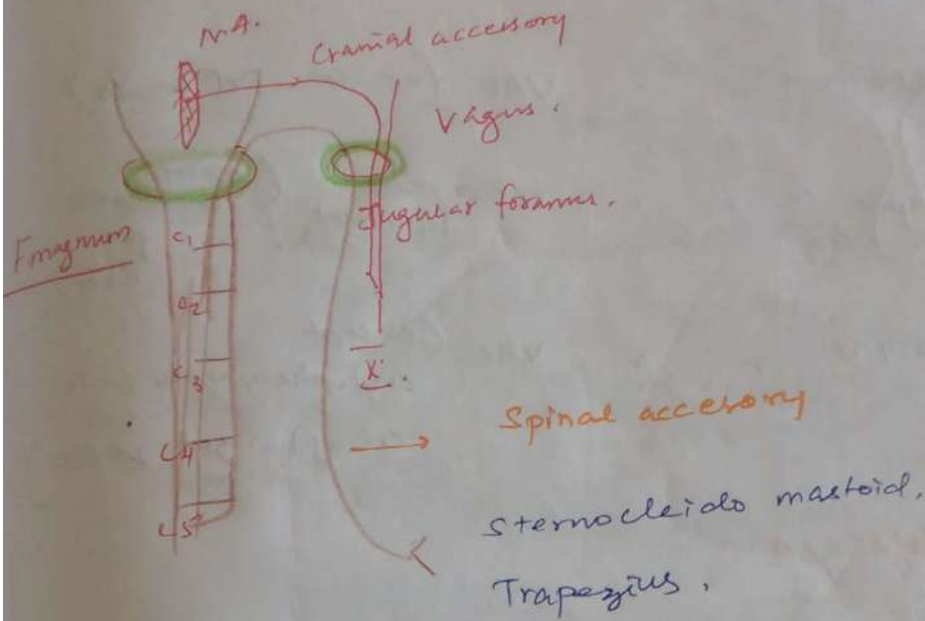 N.A.
Cranial accessory
Vagus.
Jugular foramus.
Fmagnum
C1
C2
C3
C4
C5
X.
Spinal accesory
Sternocleido mastoid,
Trapezius,